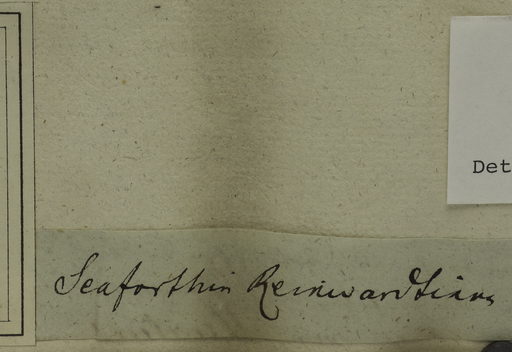 Det
Seaforthia Reinwardtiana